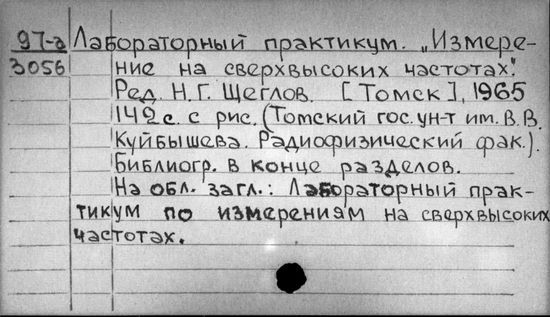 97-а Лабораторный практикум. „Измере-
3056 ние на сверхвысоких частотах".
Ред. Н.Г. Щеглов. [Томск], 1965
142 с. с рис. (Томский гос. ун-т им. В.В.
Куйбышева. Радиофизический фак.).
Библиогр. в конце разделов.
На обл. загл.: Лабораторный прак-
тикум по измерениям на сверхвысоких
частотах.